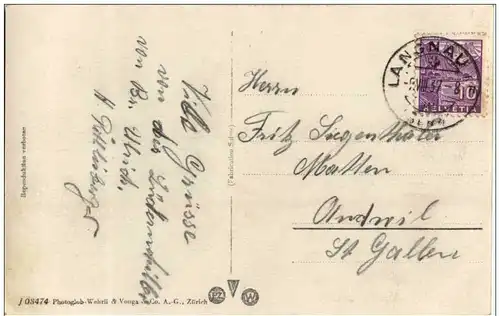 Viele Grüsse
von der
von Br. Ulrich.
Herrn
Fritz Siegenthaler
Matten
Andwil
St Gallen
LANGNAU
BERN
10
HELVETIA
Reproduktion verboten
J 03474 Photoglob-Wehrli & Vouga & Co. A.-G., Zürich
PZ
W